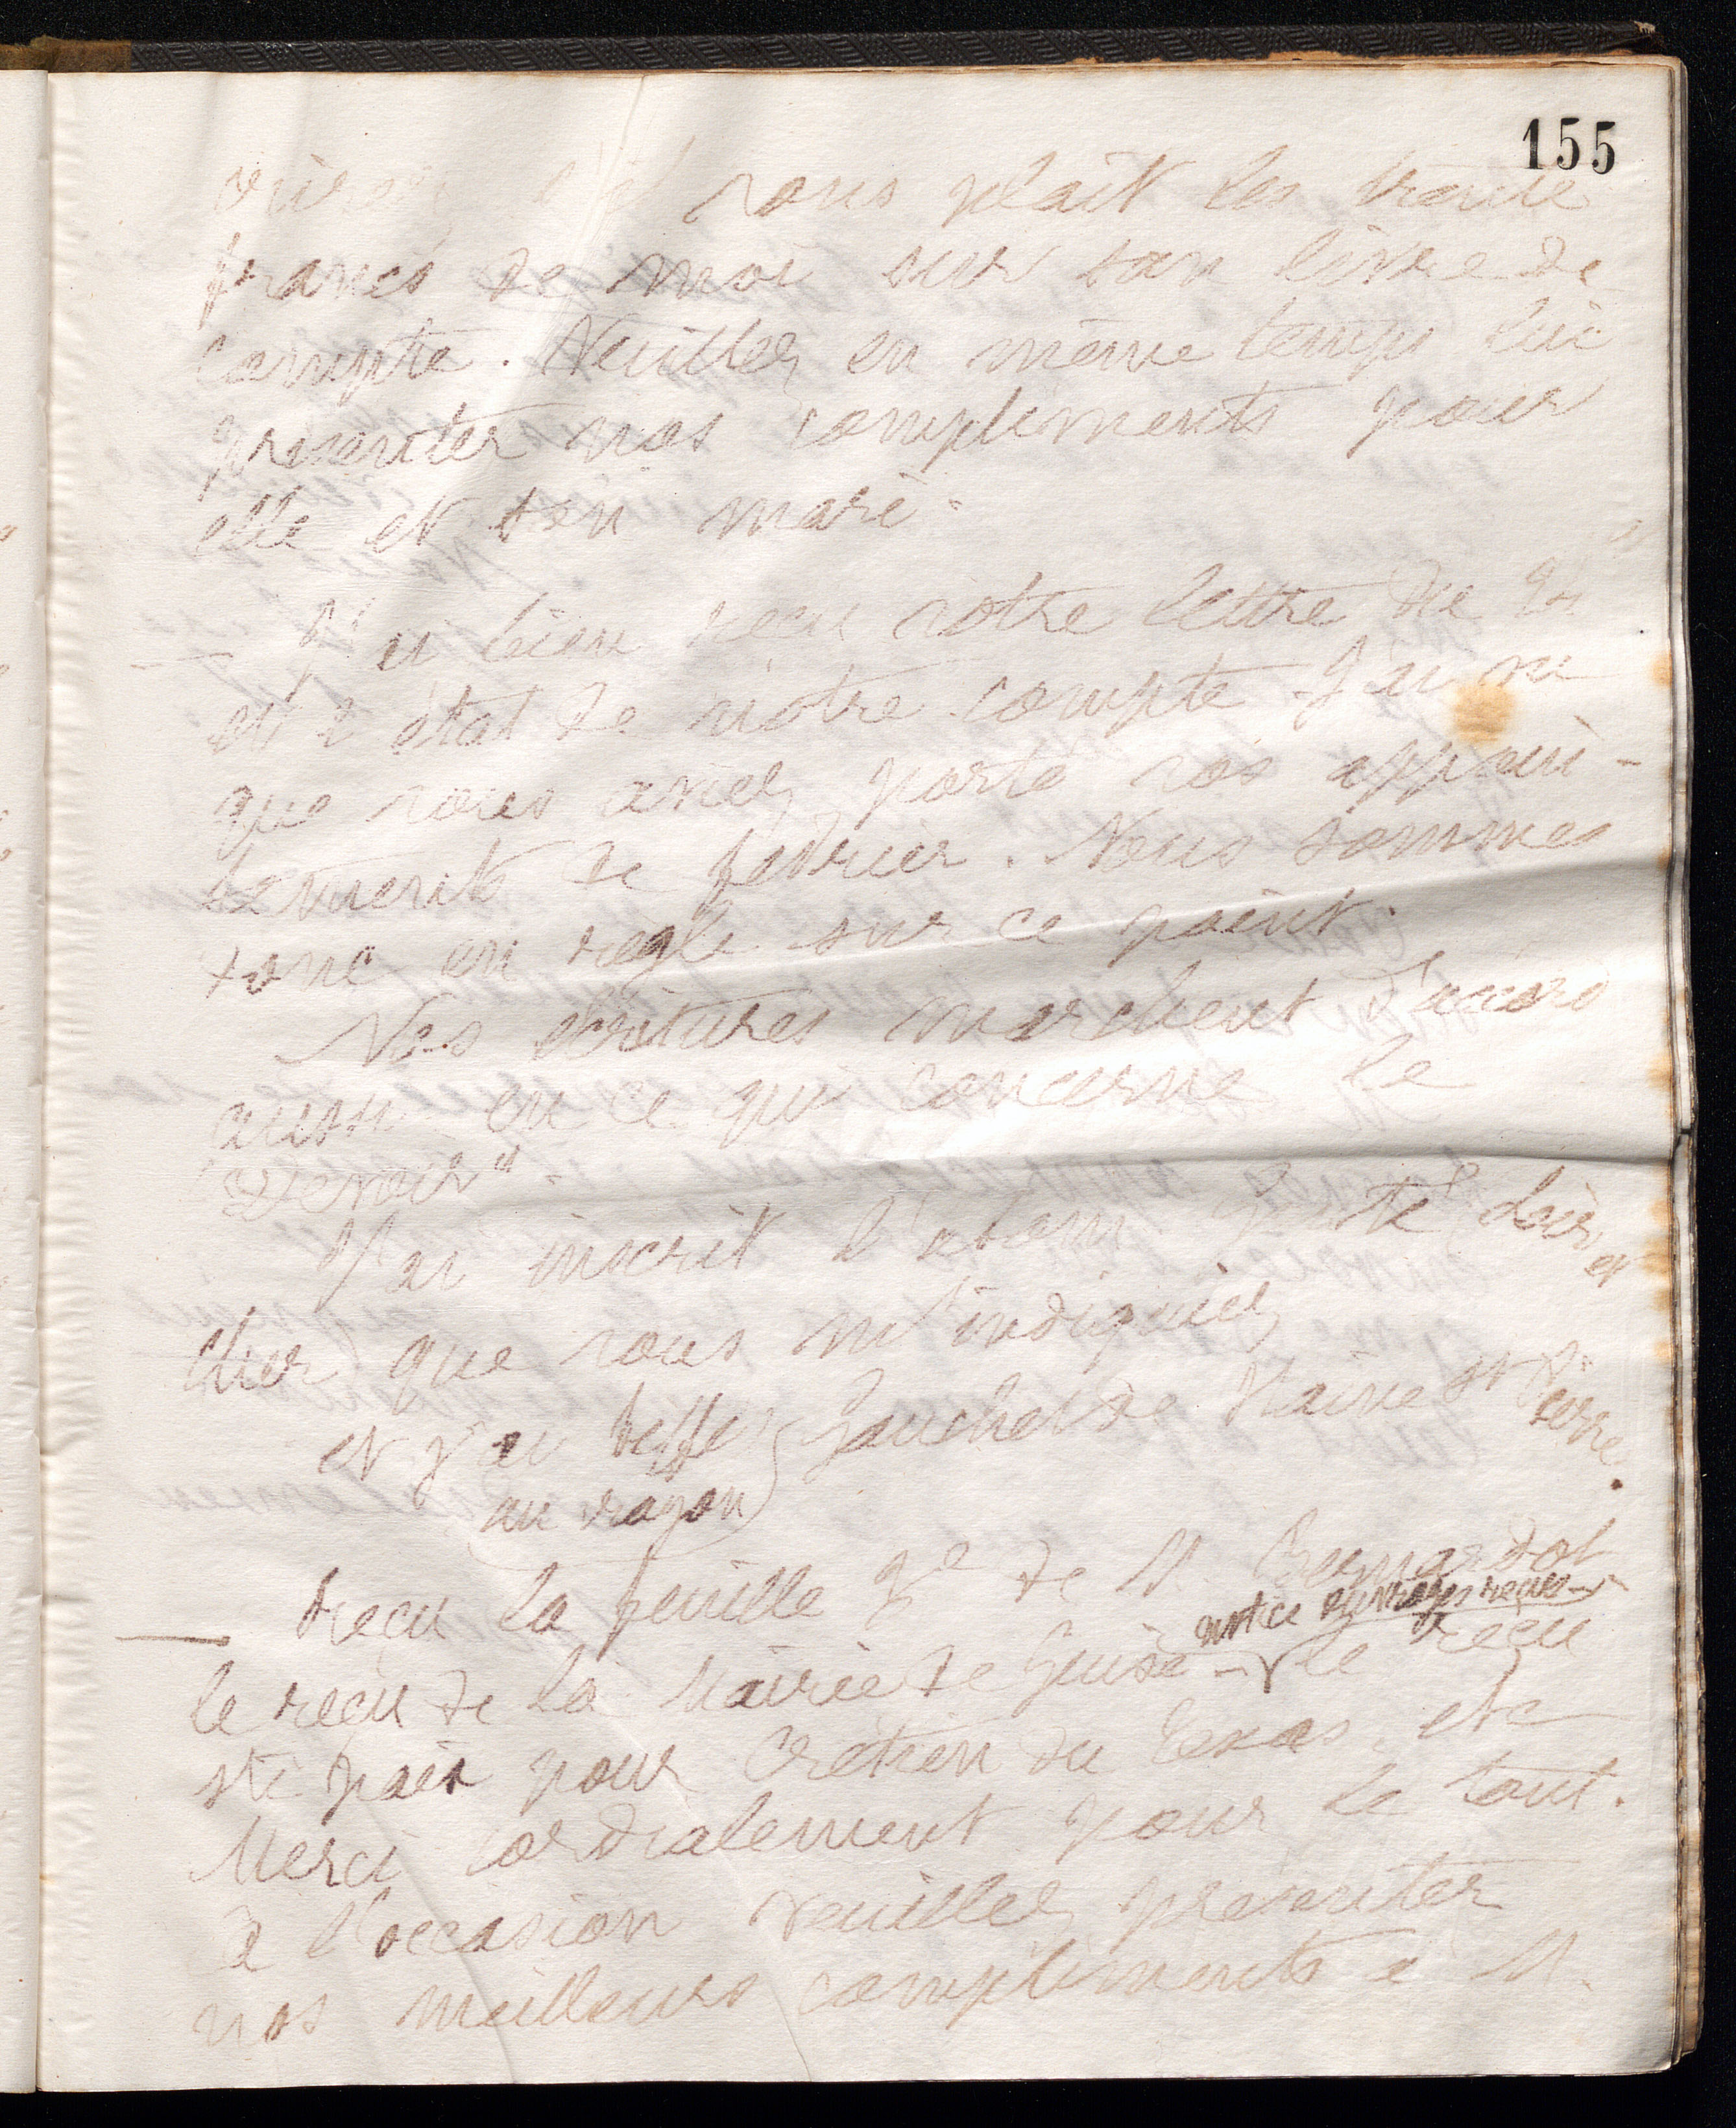 155
s'il vous plait les trente
francs de moi sur son livre de
compte. Veuillez en même temps lui
présenter nos compliments pour
elle et son mari.
J'ai bien reçu votre lettre du 24
et l'état de notre compte. J'ai vu
que vous aviez porté vos appoin-
tements de février. Nous sommes
donc en règle sur ce point.
Nos écritures marchent d'accord
aussi en ce qui concerne le
"Devoir".
J'ai inscrit l'abonn
et
cher que vous m'indiquiez
et j'ai biffé Gaucher de
au crayon
reçu la feuille de M. Bernardot
notice reçue
le reçu de la Mairie de Guise - le reçu
sté paix pour Crétien du Texas, etc
Merci cordialement pour le tout.
à l'occasion veuillez présenter
nos meilleurs compliments à M.